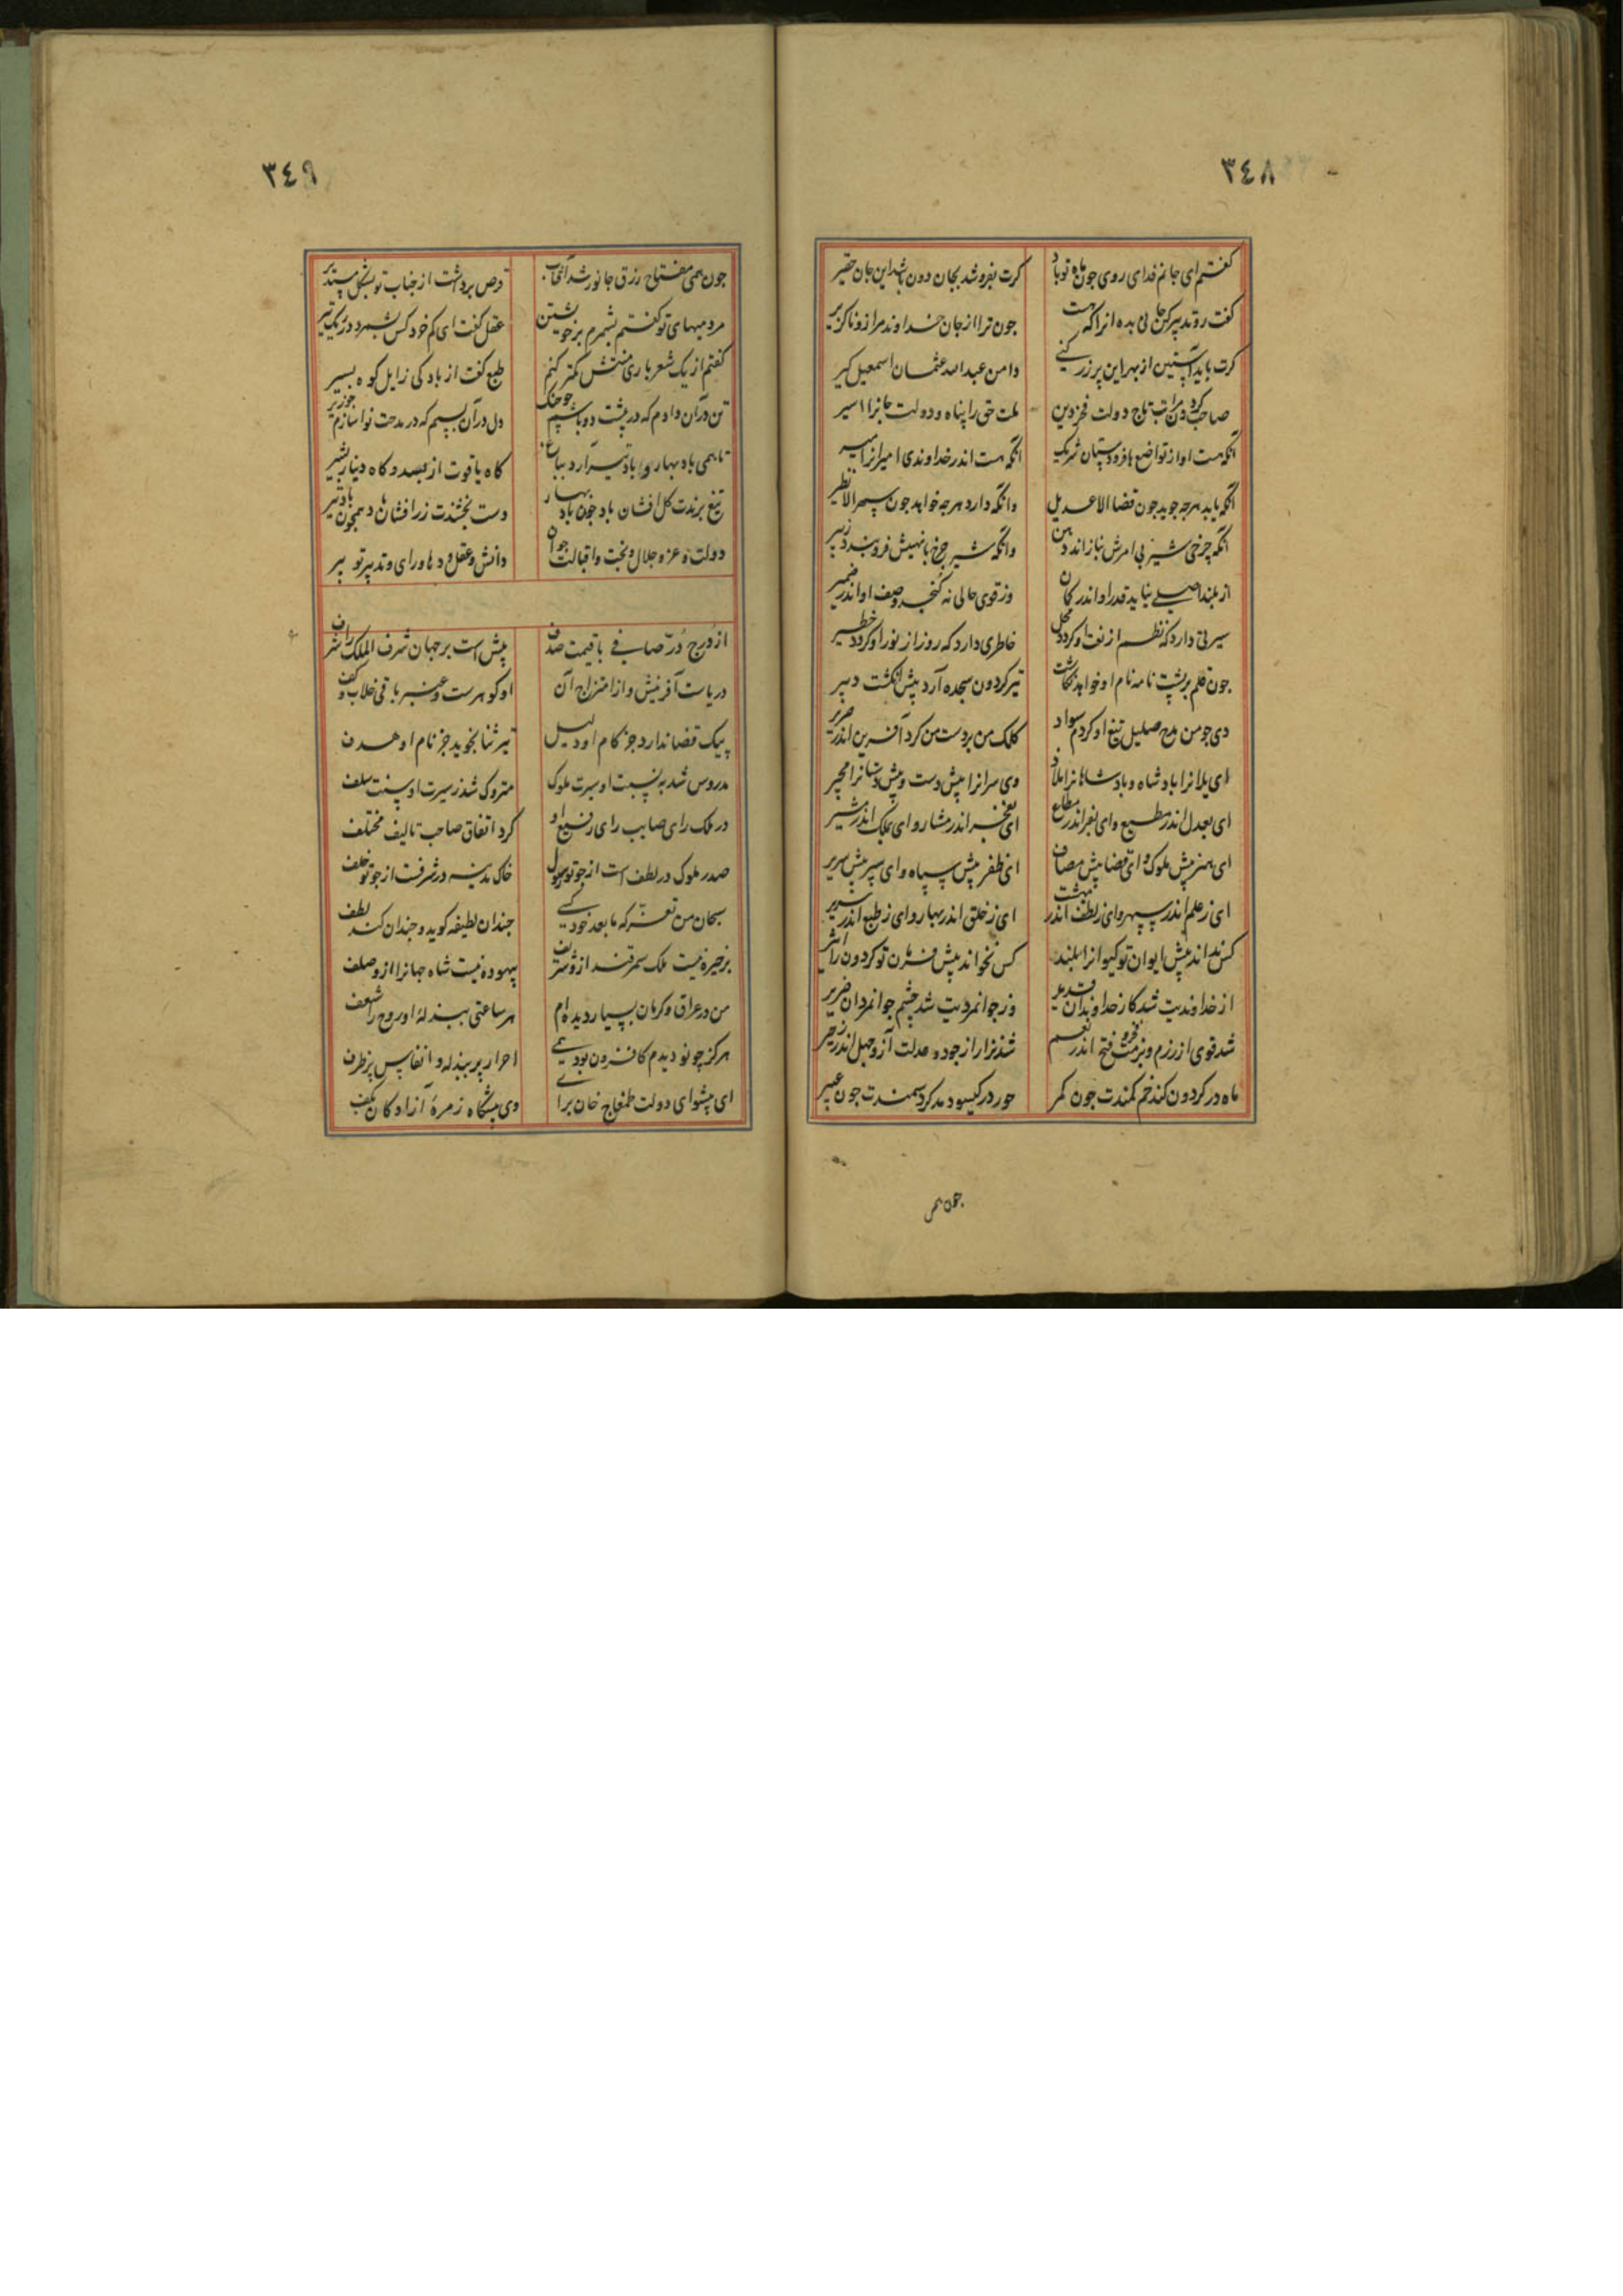 ٣٤٨
کفتم ای جانم فدای روی جون ماه توباد کرت بفروشد بجان دون باشد این جان حقیر
کفت رو تدبیر کن جانی بده انرا که هست جون ترا از جان خداوند مرا زو ناکزیر
کرت باید آستین از بهر این پر زر کنی دامن عبدالله عثمان اسمعیل کیر
صاحب تاج دولت فخر دین ملت حق را پناه و دولت اسیر
انکه هست او از تواضع با فرودستان شریک انکه هست اندر خداوندی امیرانرا امیر
انکه یابد هرجه جوید جون قضا الا عدیل وانکه دارد هرجه خواهد جون سپهر الا نظیر
انکه جرخی شیر بی امرش نیازاند دهن وانکه شیر جرخ با نهیش فرو بندد زفیر
از بلند اصلی نیاید قدر او اندر کمان وز قوی حالی نه کنجد وصف او اندر ضمیر
سیرتی دارد که نظم از نعت او کردد خاطری دارد که روز از نور او کردد خطیر
جون قلم بر پشت نامه نام او خواهد نکاشت تیر کردون سجده آرد پیش انکشت دبیر
دی جو من مدح صلیل تیغ او کردم سواد کلک من بر دست من کرد آفرین اندر صریر
ای یلانرا بادشاه و بادشاهانرا ملاذ وی سرانرا پیش دست و پیش دستانرا مجیر
ای بعدل اندر مطیع وای اندر مطاع ای اندر مشار وای بملک اندر مشیر
ای بهنر پیش ملوک و ای قضا پیش مصاف ای ظفر پیش سپاه و ای سپر پیش سریر
ای ز علم اندر سپهر و ای ز لطف اندر بهشت ای ز خلق اندر بهار و ای ز طبع اندر
کس نداند پیش ایوان تو کیوانرا بلند کس نخواند پیش تو کردون را اثیر
از خداوندیت شد کار خداوندان قدیر وز جوانمردیت شد چشم جوانمردان ضریر
شد قوی از رزم و بزمت فتح اندر نعیم شد نزار از جود و عدلت آز و جهل اندر زحیر
ماه در کردون کند خم کمندت جون کمر حور در کیسو دمد کرد سمندت جون عبیر
جون همی
٣٤٩
جون همی مفتاح رزق جانور شد آفتاب قرص برداشت از جناب تو بشکل مستدیر
مردمیهای تو کفتم بشمرم بر خویشتن عقل کفت ای کم خرد کس بشمرد در ریک تیر
کفتم از یک شعر باری منتش کمتر کنم طبع کفت از باد کی زایل کوه ثبیر
تن در آن دادم که در پشت دو باشم جو جنک دل در آن بستم که در مدحت نوا سازم جو زیر
تا همی باد بهار و باد تیر آرد بباغ کاه یاقوت از بسد و کاه دینار
تیغ برندت کل افشان باد جون باد بهار دست بخشندت زر افشان باد همجون باد تیر
دولت و عز و جلال و بخت و اقبالت جوان دانش و عقل و دها و رای و تدبیر تو پیر
از درج دُرّ صافی با قیمت صدف پیش است بر جهان شرف الملک را شرف
دریاست آفرینش و از امتزاج آن او کوهرست و عنبر و باقی خلاب و کف
پیک قضا ندارد جز کام او دلیل تیر ثنا نجوید جز نام او هدف
مدروس شد به نسبت او سیرت ملوک متروک شد ز سیرت او سنت سلف
در ملک رای صایب رای رفیع او کرد اتفاق صاحب تالیف مختلف
صدر ملوک در لطف است از جو تو رسول خاک مدینه در شرفت از جو تو خلف
سبحان من تعزّ که ما بعد خود کسی جندان لطیفه کوید و جندان کند لطف
بر خیره نیست ملک سمرقند ازو شریف بیهوده نیست شاه جهانرا ازو صلف
من در عراق و کرمان بسیار دیده ام هر ساعتی ببذله او روح را شعف
هرکز جو تو دیدم کافزون بود همی احرار بر ببذله و انفاس پر ظرف
ای پیشوای دولت طمغاج خان برای وی پیشگاه زمرهٔ آزادکان بکف